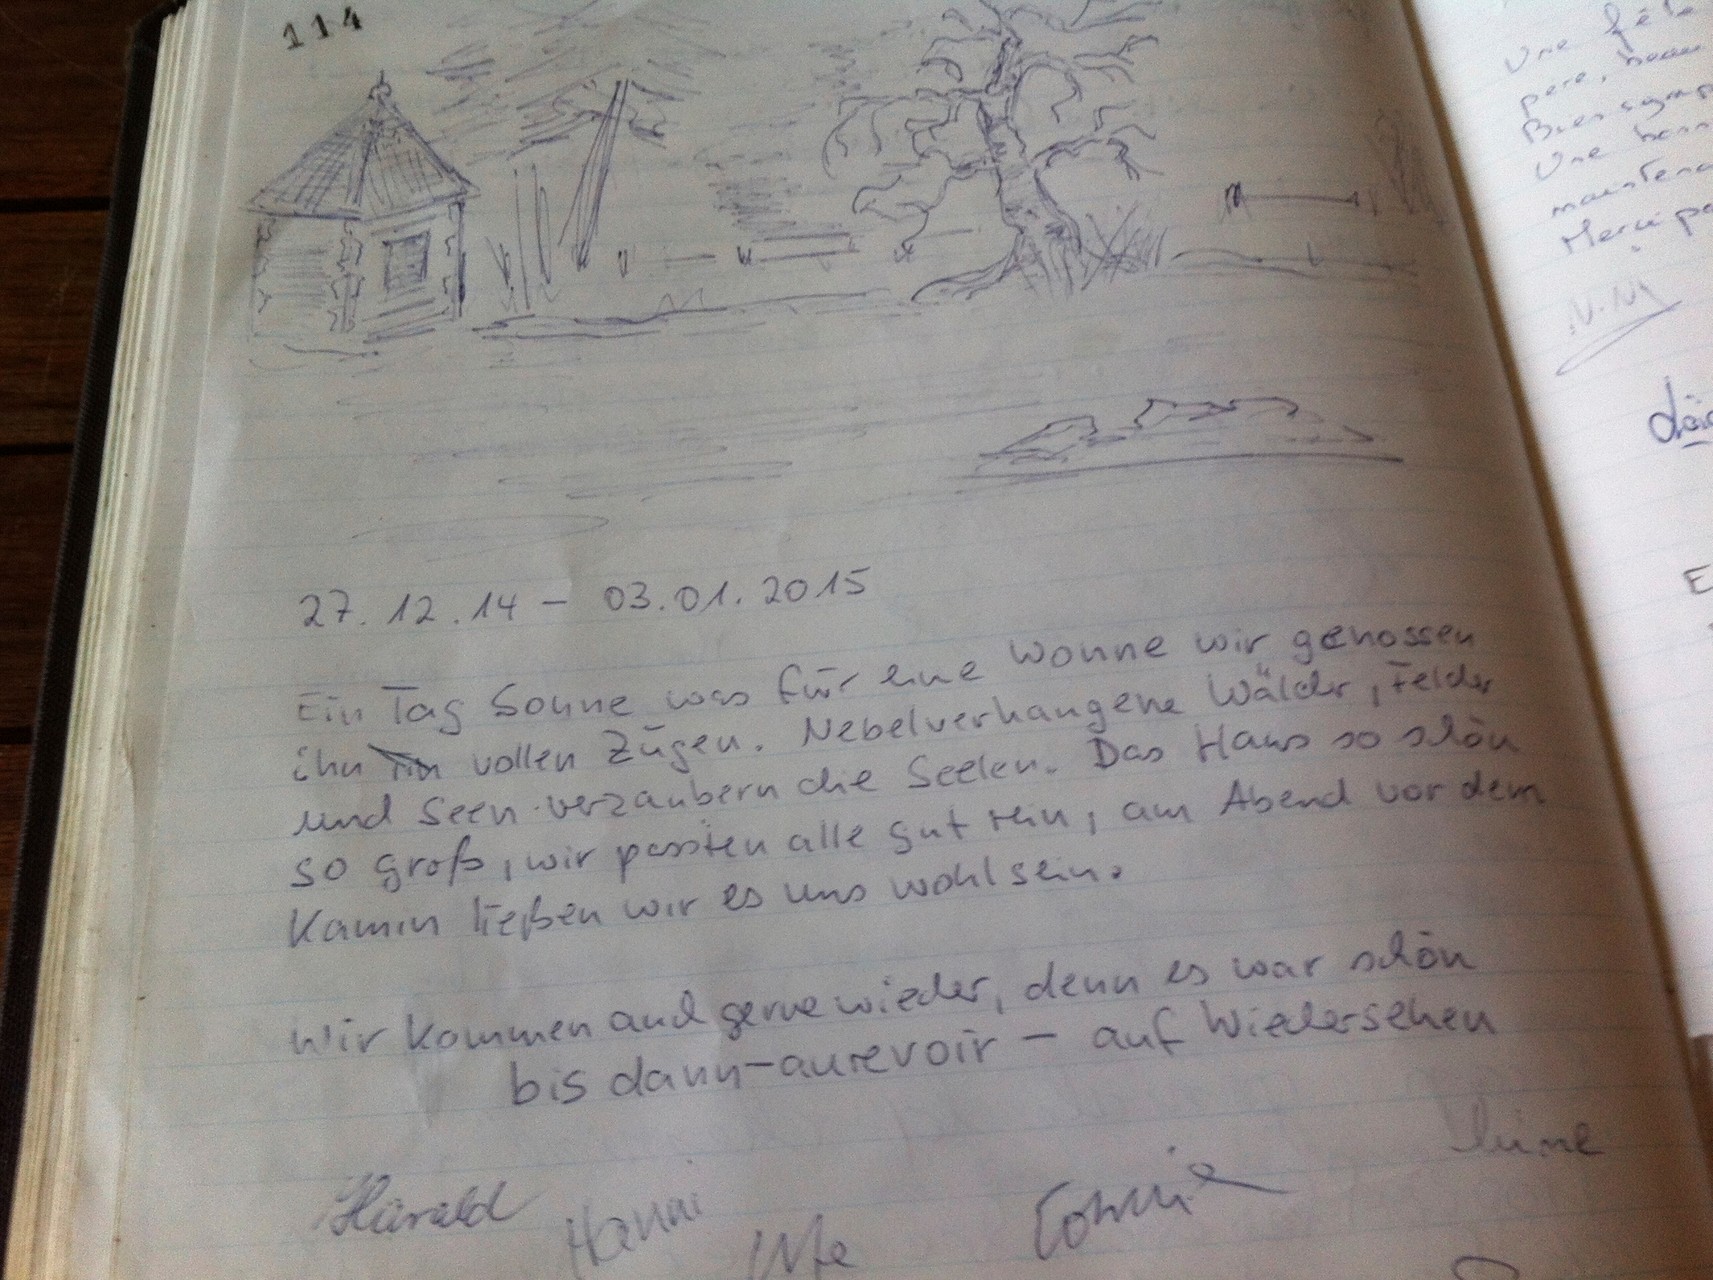 114
27.12.14 – 03.01.2015
Ein Tag Sonne was für eine Wonne wir genossen
ihn vollen Zügen. Nebelverhangene Wälder, Felder
und Seen verzaubern die Seelen. Das Haus so schön
so groß, wir passten alle gut rein, am Abend vor dem
Kamin ließen wir es uns wohl sein.
Wir kommen auch gerne wieder, denn es war schön
bis dann – aurevoir – auf Wiedersehen
Harald Hanni Ute
Une fête
père,
Bien symp
Une
maintena
Merci pa
N.N